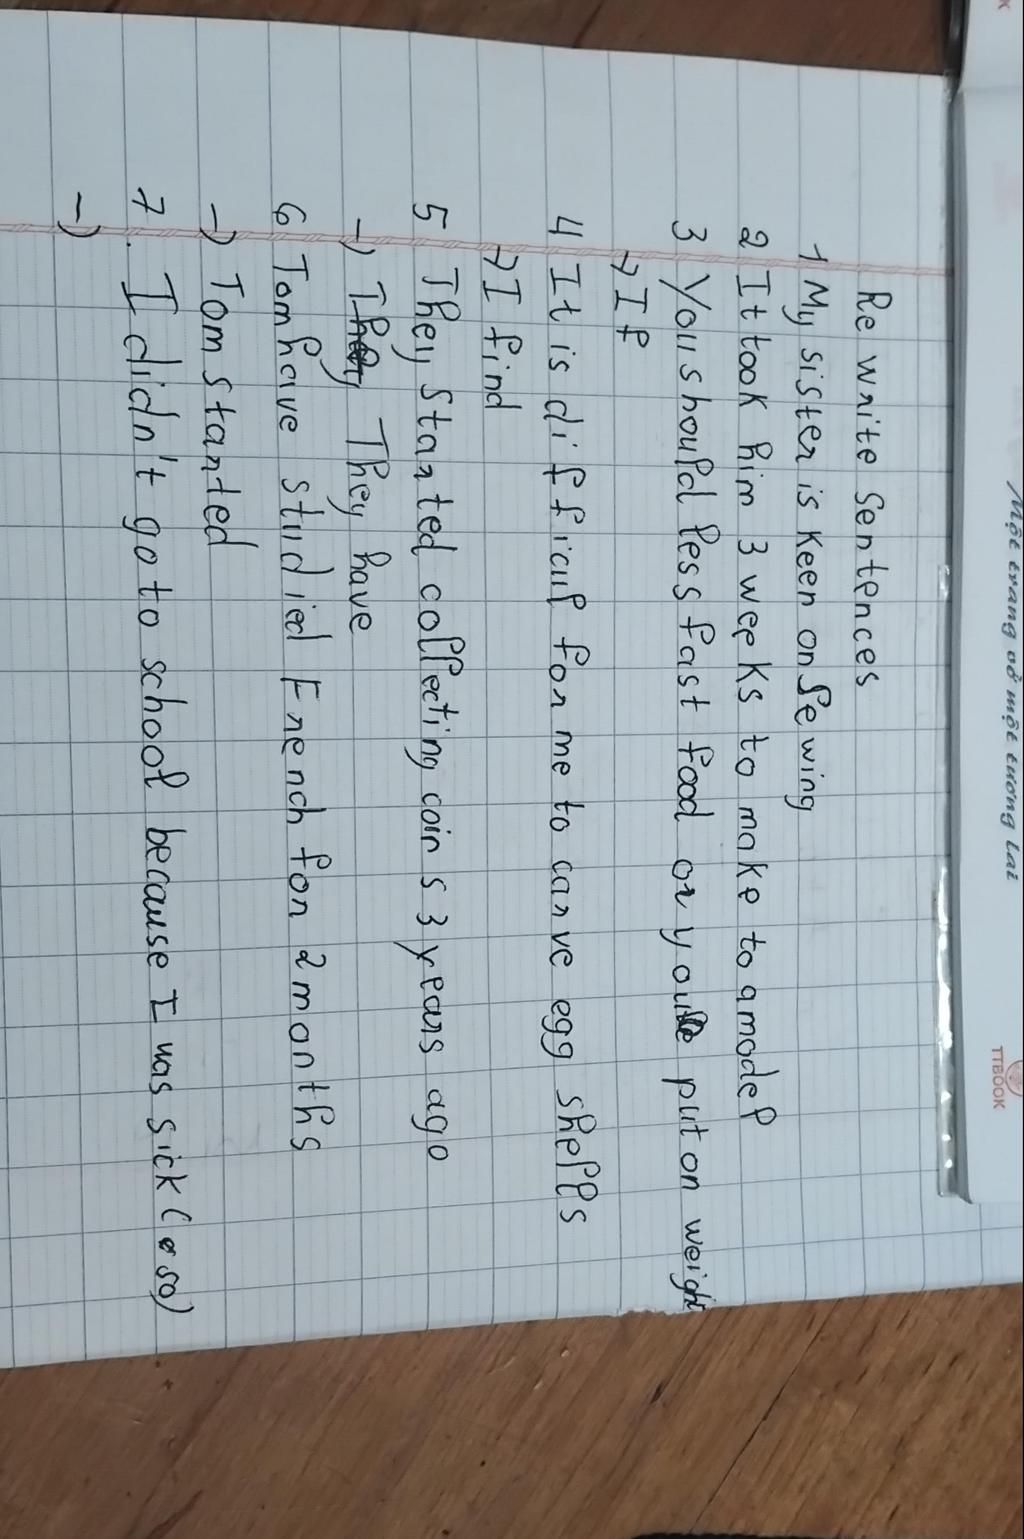 Một trang vở một tương lai
TTBOOK
Re write Sentences
1 My sister is keen on Sewing
2 It took him 3 weeks to make to a model
3 You should less fast food or you'll put on weight
→ If
4 It is difficul for me to carve egg shells
→ I find
5 They started collecting coins 3 years ago
→ They have
6 Tom have studied French for 2 months
→ Tom started
7. I didn't go to school because I was sick (so)
→